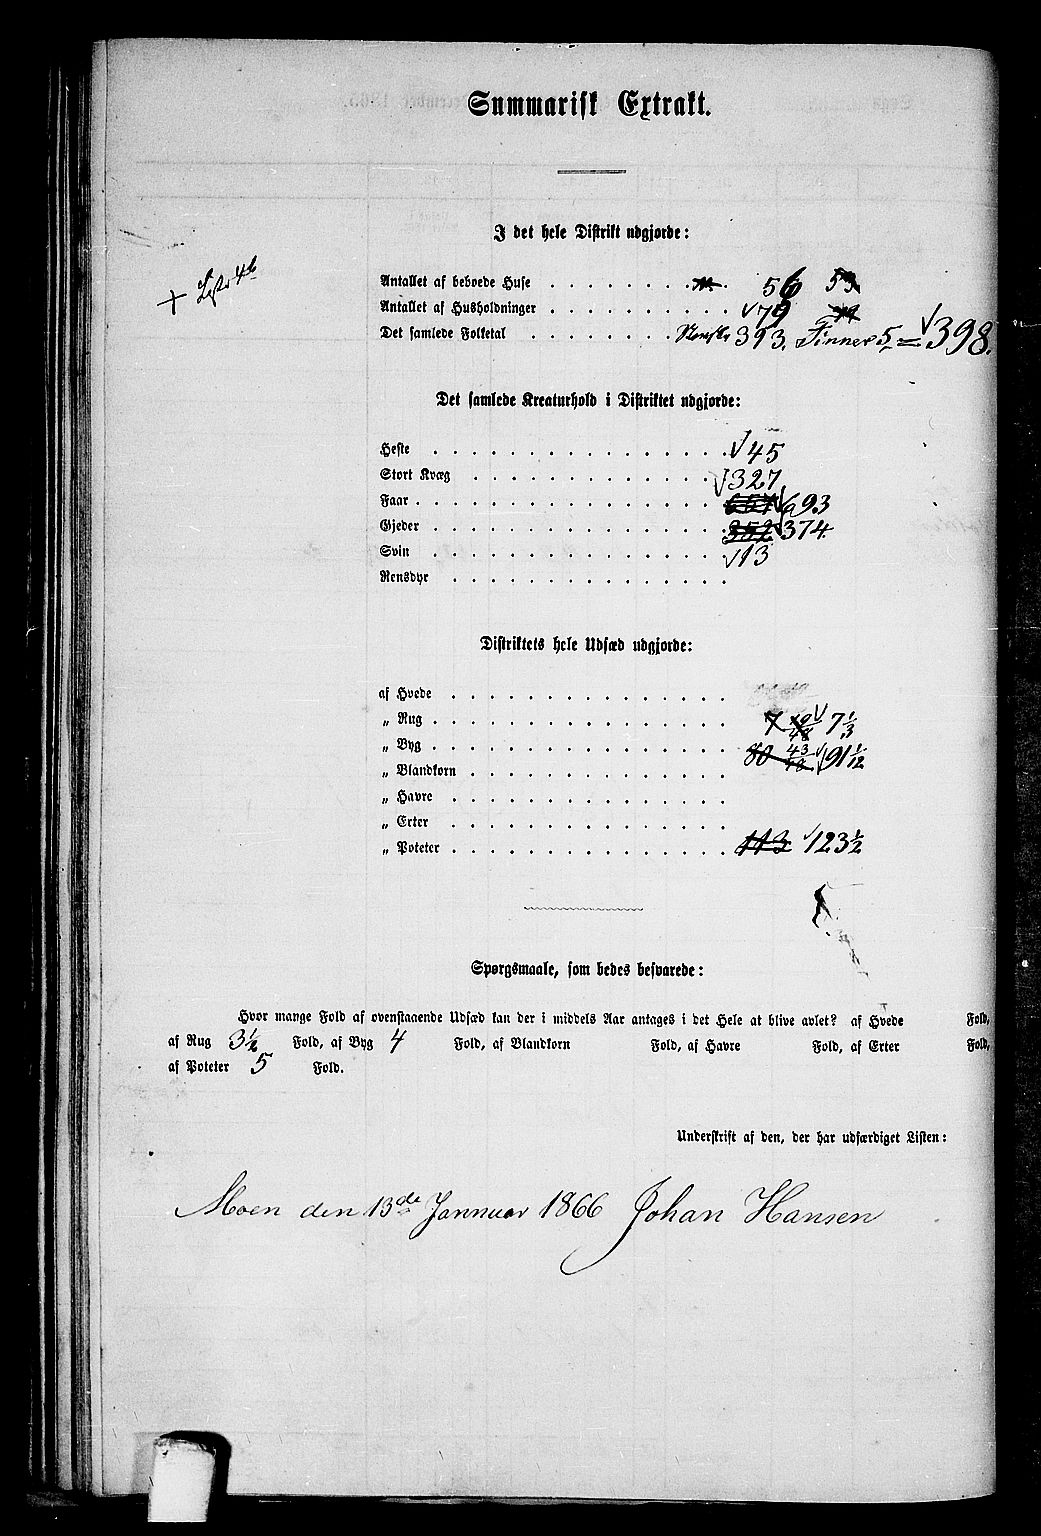 Summarisk Extrakt.
I det hele Distrikt udgjorde:
+ Liste 4b
Antallet af beboede Huse . . . . . . . . . 56 53
Antallet af Husholdninger . . . . . . . . . √79
Det samlede Folketal . . . . . . . . Norske 393. Finner 5 = √398.
Det samlede Kreaturhold i Distriktet udgjorde:
Heste . . . . . . . . . . . . . . . √45
Stort Kvæg . . . . . . . . . . . . . √327
Faar . . . . . . . . . . . . . . . . 657 √693
Gjeder . . . . . . . . . . . . . . . 352 374
Svin . . . . . . . . . . . . . . . √13
Rensdyr . . . . . . . . . . . . . . .
Distriktets hele Udsæd udgjorde:
af Hvede . . . . . . . . . . . . . . .
„ Rug . . . . . . . . . . . . . . . . 7 19/48 √ 7 1/3
„ Byg . . . . . . . . . . . . . . . . 80 43/48 √ 91 1/12
„ Blandkorn . . . . . . . . . . . . . .
„ Havre . . . . . . . . . . . . . . .
„ Erter . . . . . . . . . . . . . . .
„ Poteter . . . . . . . . . . . . . . . 113 √123 1/2
Spørgsmaale, som bedes besvarede:
Hvor mange Fold af ovenstaaende Udsæd kan der i middels Aar antages i det Hele at blive avlet? af Hvede Fold,
af Rug 3 1/2 Fold, af Byg 4 Fold, af Blandkorn Fold, af Havre Fold, af Erter Fold,
af Poteter 5 Fold.
Underskrift af den, der har udfærdiget Listen:
Moen den 13de Jannuar 1866 Johan Hansen